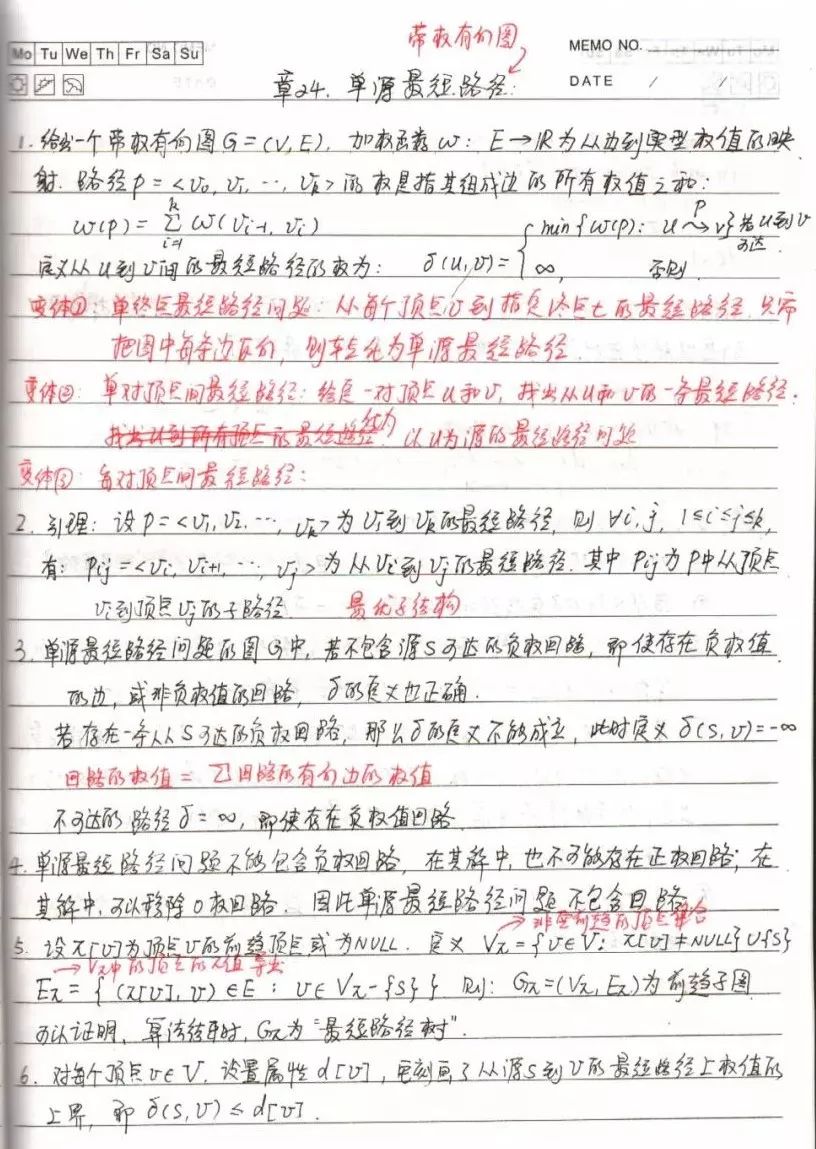 带权有向图
MEMO NO.
Mo Tu We Th Fr Sa Su
DATE / /
章24. 单源最短路径:
1. 给出一个带权有向图G=(V,E), 加权函数 w: E→R为从边到实型权值的映
射. 路径p=<v0, v1, ..., vk>的权是指其组成边的所有权值之和:
w(p) = Σ(i=1 到 k) w(vi-1, vi)
定义从u到v间的最短路径的权为: δ(u,v) = { min{w(p): u ⇝(p) v} 若u到v可达
∞, 否则
变体①: 单终点最短路径问题: 从每个顶点v到指定终点t的最短路径. 只需
把图中每条边反向, 则转化为单源最短路径
变体②: 单对顶点间最短路径: 给定一对顶点u和v, 找出从u和v的一条最短路径:
找出从u到所有顶点的最短路径 以u为源的最短路径问题
变体③: 每对顶点间最短路径:
2. 引理: 设p=<v1, v2, ..., vk>为v1到vk的最短路径, 则 ∀i,j, 1≤i≤j≤k,
有: Pij=<vi, vi+1, ..., vj>为从vi到vj的最短路径. 其中Pij为P中从顶点
vi到顶点vj的子路径. 最优子结构
3. 单源最短路径问题的图G中, 若不包含源S可达的负权回路, 即使存在负权值
的边, 或非负权值的回路, δ的定义也正确.
若存在一条从S可达的负权回路, 那么δ的定义不能成立, 此时定义 δ(S,v)=-∞
回路的权值 = Σ回路所有向边的权值
不可达的路径δ=∞, 即使存在负权值回路.
4. 单源最短路径问题不能包含负权回路, 在其解中, 也不可能存在正权回路; 在
其解中, 可以移除0权回路. 因此单源最短路径问题不包含回路
→非空前趋的顶点集合
5. 设π[v]为顶点v的前趋顶点或为NULL. 定义 Vπ={v∈V: π[v]≠NULL}∪{S}
→Vπ中的顶点的π值导出
Eπ={(π[v], v)∈E: v∈Vπ-{S}} 则: Gπ=(Vπ, Eπ)为前趋子图
可以证明, 算法结束时, Gπ为"最短路径树".
6. 对每个顶点v∈V, 设置属性d[v], 它刻画了从源S到v的最短路径上权值的
上界, 即δ(S,v)≤d[v].